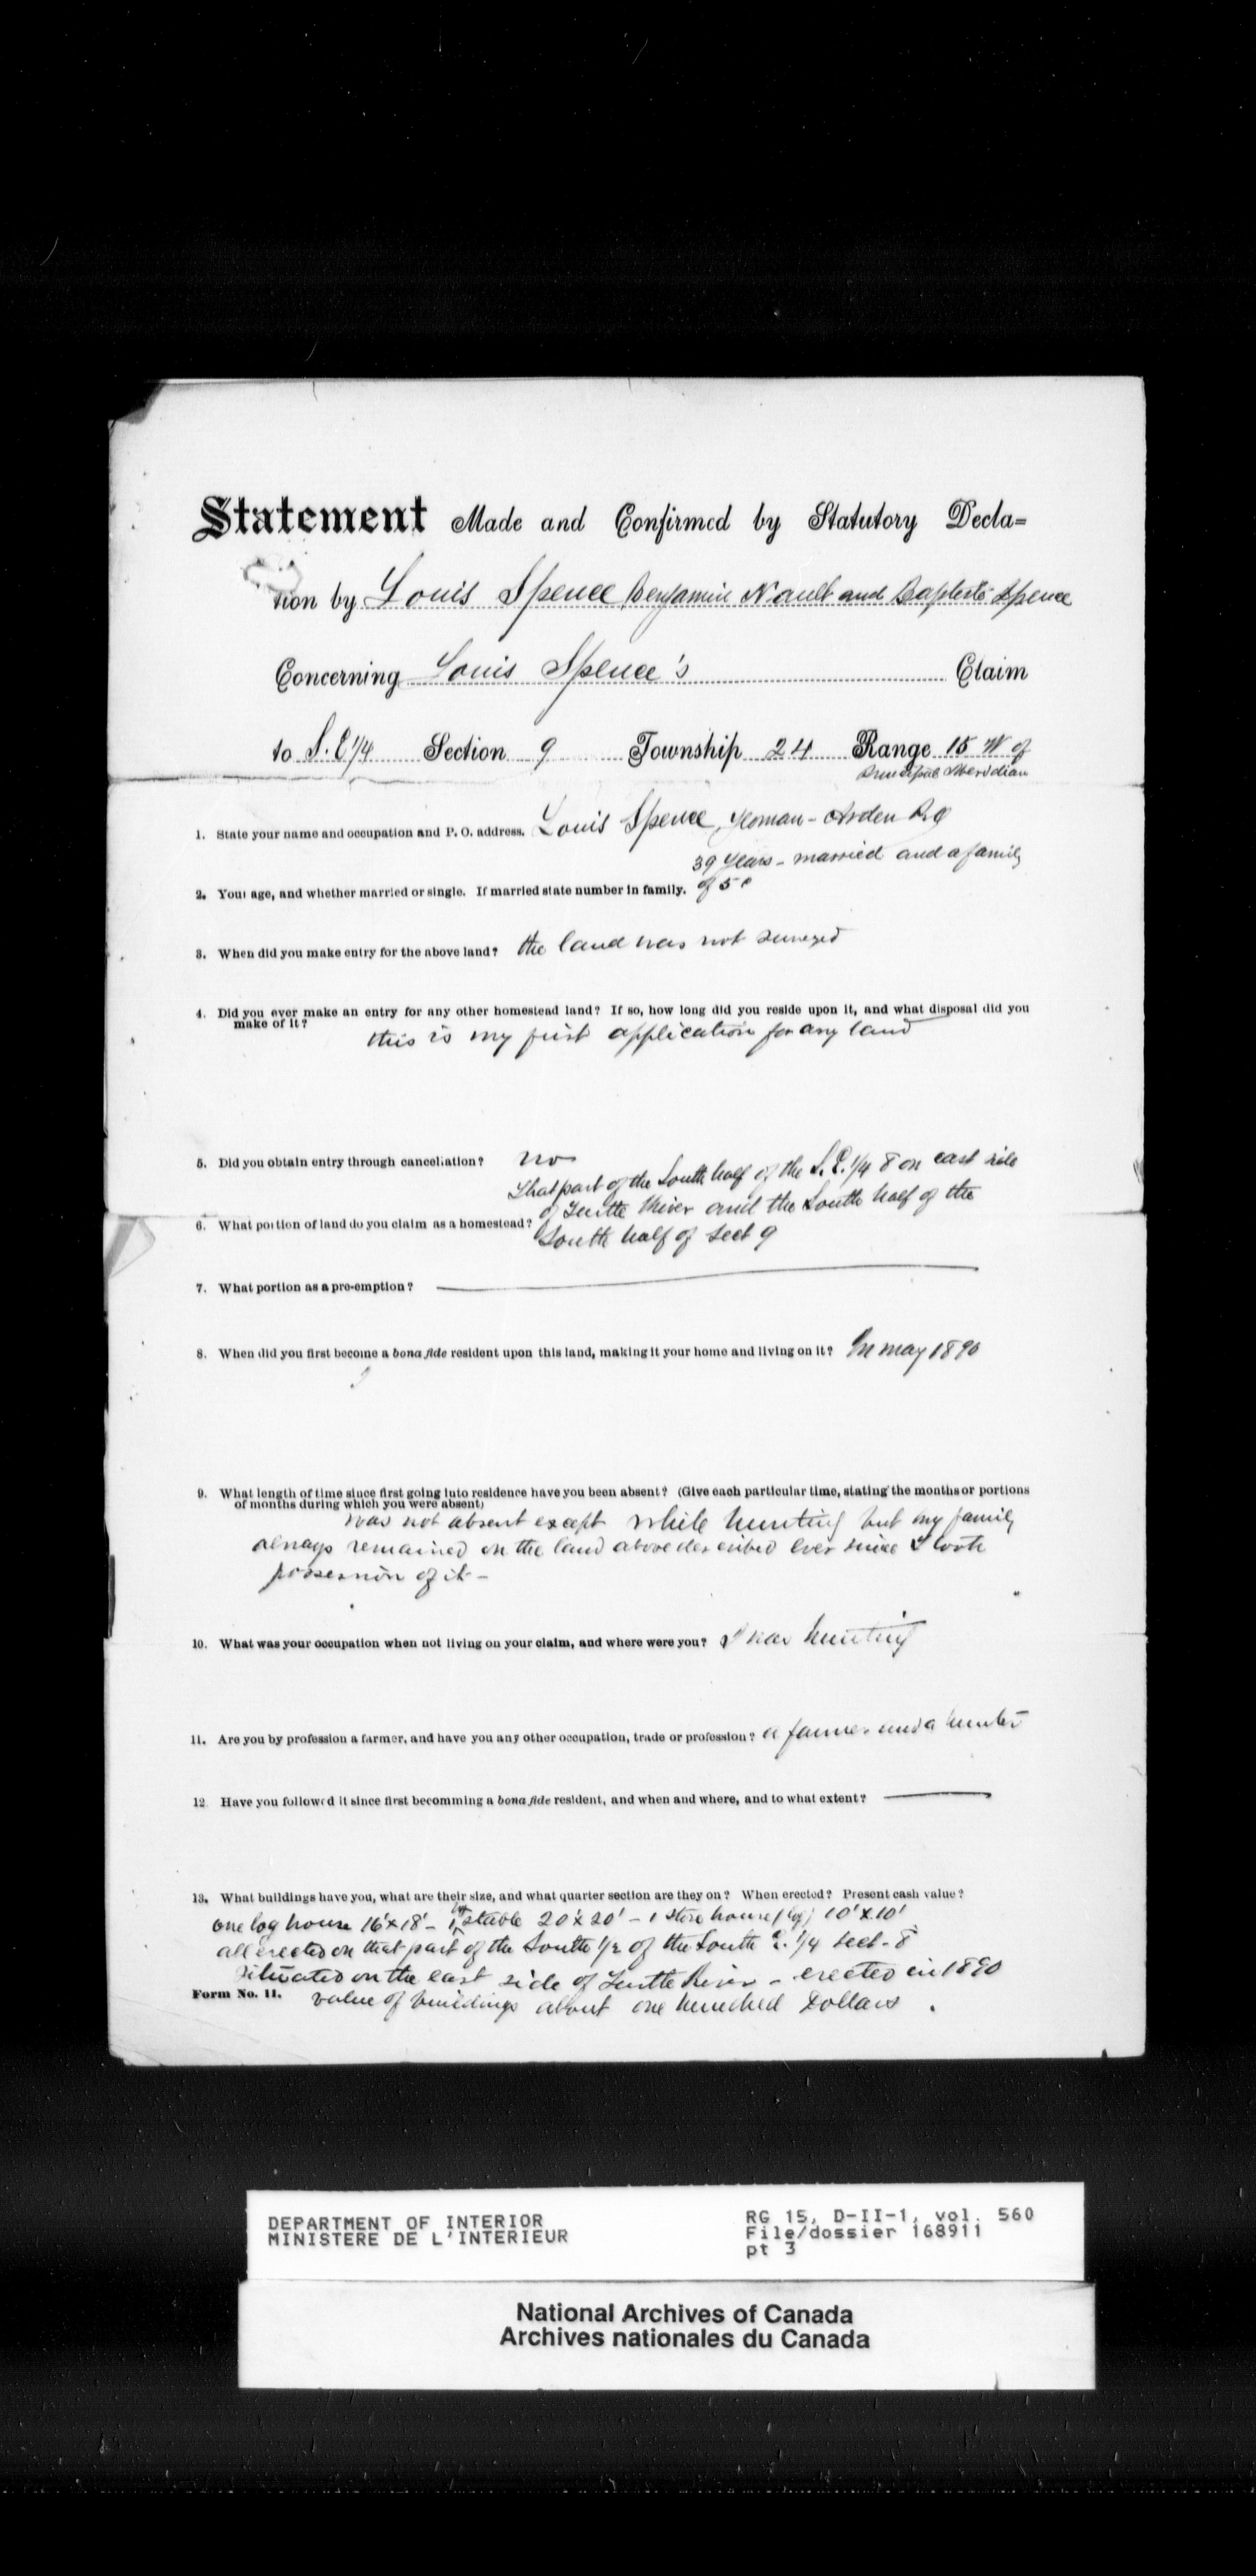 Statement Made and Confirmed by Statutory Decla=
tion by Louis Spence Benjamin Nault and Baptiste Spence
Concerning Louis Spence's Claim
to S.E 1/4 Section 9 Township 24 Range 15 W of
Principal Meridian
1. State your name and occupation and P. O. address. Louis Spence, Yeoman - Arden P.O
39 years - married and a family
2. Your age, and whether married or single. If married state number in family. of 5
3. When did you make entry for the above land? the land was not surveyed
4. Did you ever make an entry for any other homestead land? If so, how long did you reside upon it, and what disposal did you
make of it?
this is my first application for any land
5. Did you obtain entry through cancellation? no
That part of the South half of the S.E. 1/4 8 on east side
of Turtle River and the South half of the
6. What portion of land do you claim as a homestead?
South half of Sect 9
7. What portion as a pre-emption?
8. When did you first become a bona fide resident upon this land, making it your home and living on it? In may 1890
9. What length of time since first going into residence have you been absent? (Give each particular time, stating the months or portions
of months during which you were absent)
was not absent except while hunting but my family
always remained on the land above described ever since I took
possession of it -
10. What was your occupation when not living on your claim, and where were you? I was hunting
11. Are you by profession a farmer, and have you any other occupation, trade or profession? a farmer and a hunter
12. Have you followed it since first becomming a bona fide resident, and when and where, and to what extent?
13. What buildings have you, what are their size, and what quarter section are they on? When erected? Present cash value?
one log house 16'x18' - 1 log stable 20'x20' - 1 store house (log) 10'x10'
all erected on that part of the South 1/2 of the South E. 1/4 Sect - 8
situated on the east side of Turtle River - erected in 1890
Form No. 11. value of buildings about one hundred Dollars.
DEPARTMENT OF INTERIOR
MINISTERE DE L'INTERIEUR
RG 15, D-II-1, vol. 560
File/dossier 168911
pt 3
National Archives of Canada
Archives nationales du Canada